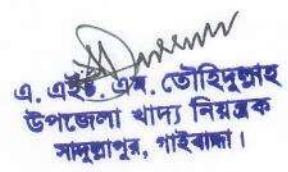 এ. এইচ. এম. তৌহিদুল্লাহ
উপজেলা খাদ্য নিয়ন্ত্রক
সাদুল্লাপুর, গাইবান্ধা।